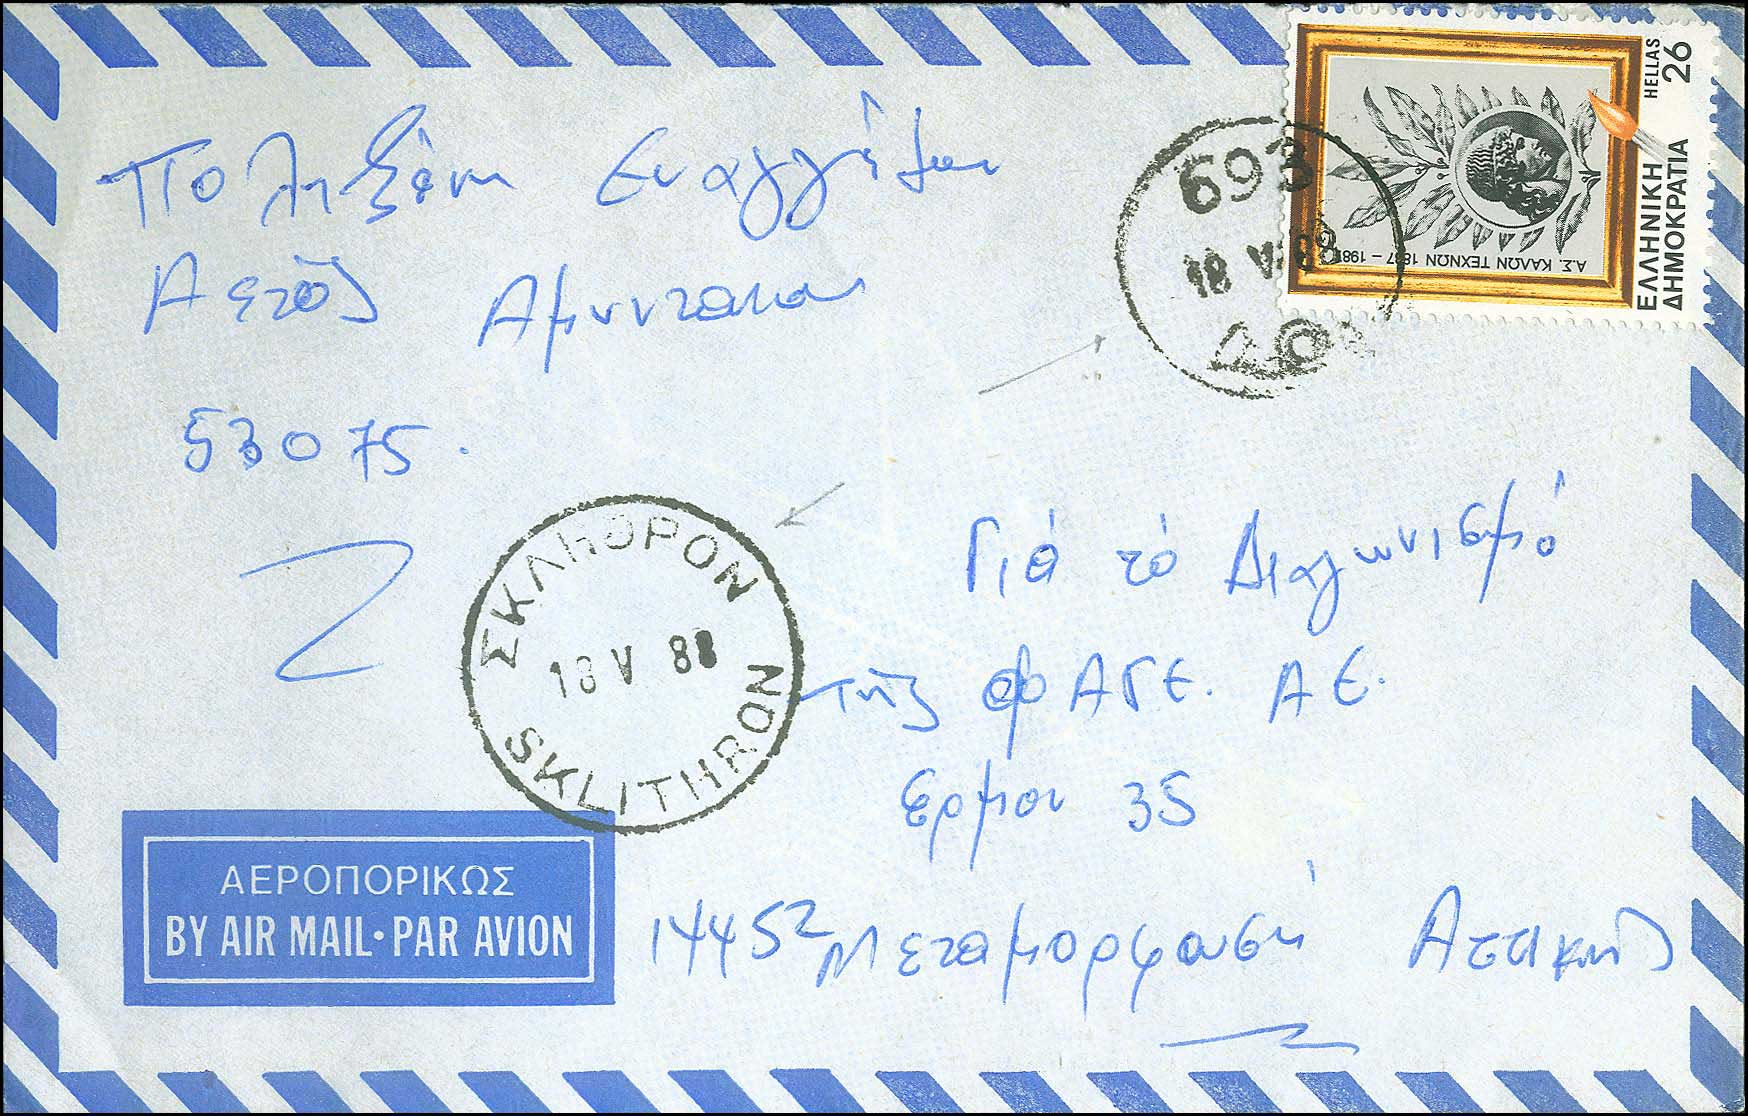 Πολυξένη Ευαγγέλου
Αετός Αμυνταίου
53075.
ΕΛΛΗΝΙΚΗ
ΔΗΜΟΚΡΑΤΙΑ
HELLAS
26
Α.Σ. ΚΑΛΩΝ ΤΕΧΝΩΝ 1837 – 1987
693
18 V 88
ΣΚΛΗΘΡΟΝ
18 V 88
SKLITHRON
Γιά τό Διαγωνισμό
τῆς ΦΑΓΕ. ΑΕ.
Ερμου 35
14452 Μεταμορφωσή Αττικής
ΑΕΡΟΠΟΡΙΚΩΣ
BY AIR MAIL·PAR AVION